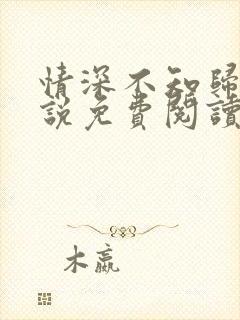 情深不知歸
說免費閱讀
木嬴